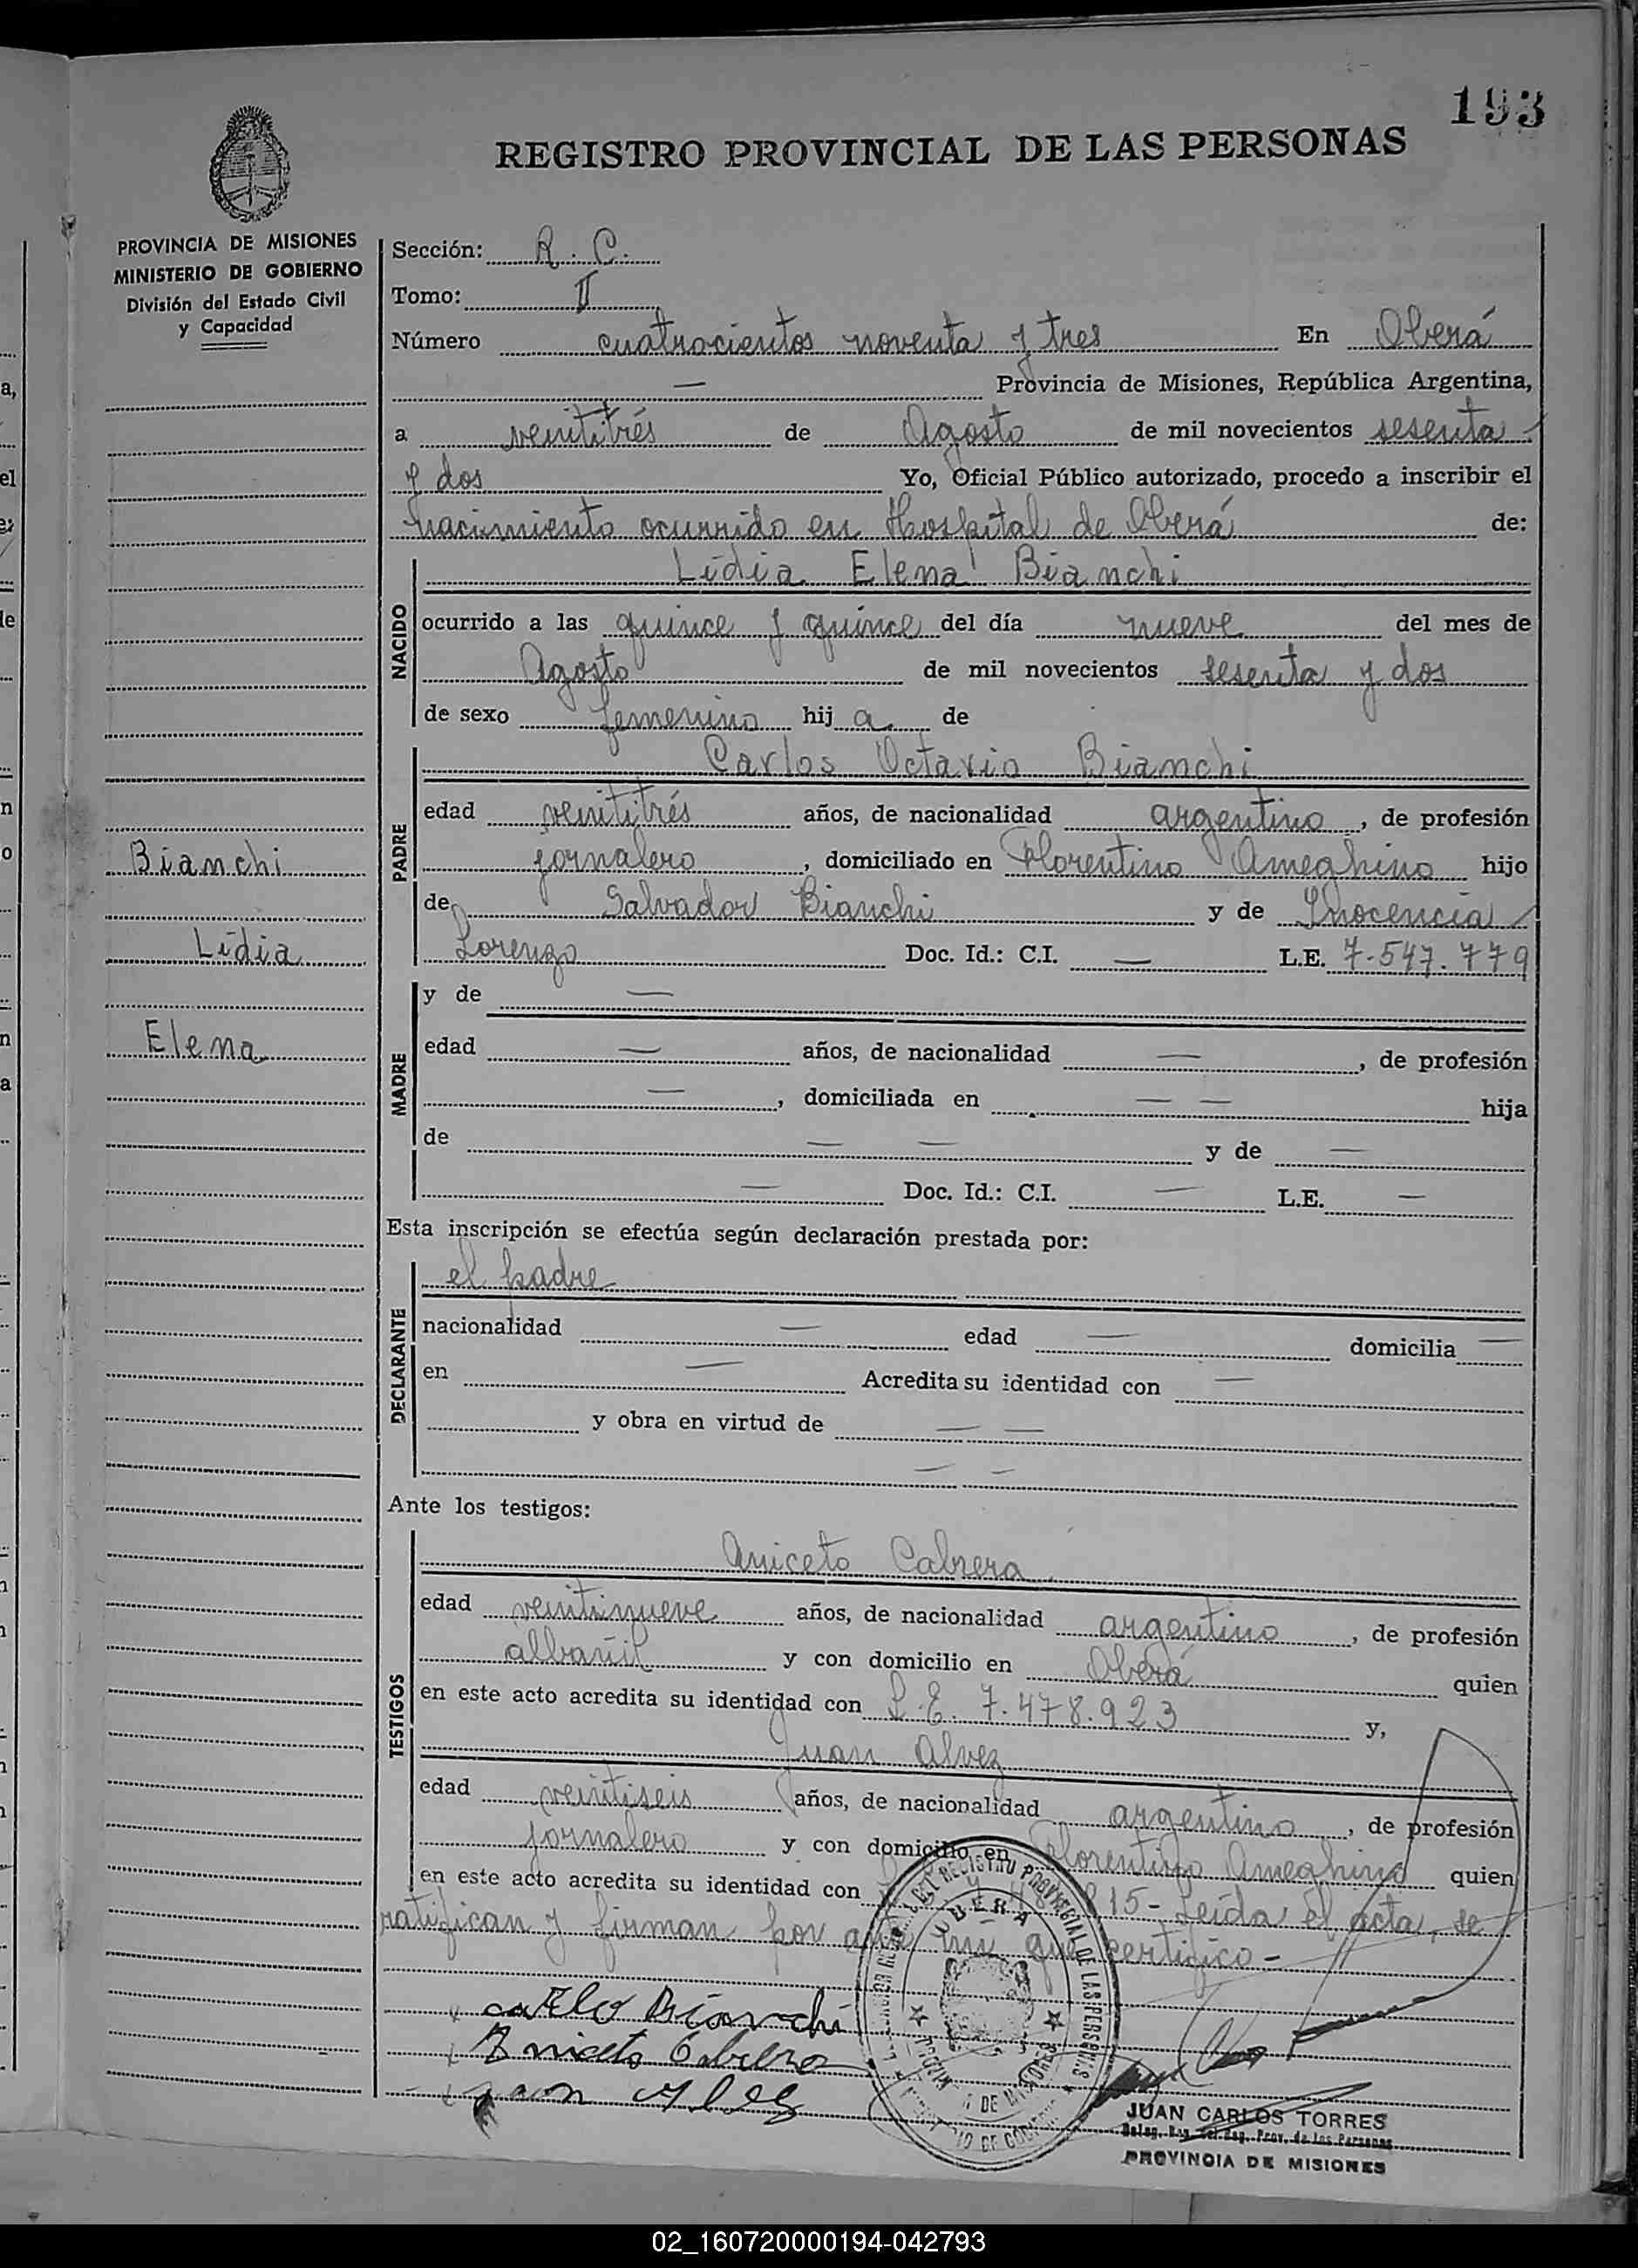 193
REGISTRO PROVINCIAL DE LAS PERSONAS
PROVINCIA DE MISIONES
MINISTERIO DE GOBIERNO
División del Estado Civil
y Capacidad
Bianchi
Lidia
Elena
Sección: R. C.
Tomo: II
Número cuatrocientos noventa y tres En Oberá
— Provincia de Misiones, República Argentina,
a veintitrés de Agosto de mil novecientos sesenta
y dos Yo, Oficial Público autorizado, procedo a inscribir el
nacimiento ocurrido en Hospital de Oberá de:
NACIDO
Lidia Elena Bianchi
ocurrido a las quince y quince del día nueve del mes de
Agosto de mil novecientos sesenta y dos
de sexo femenino hij a de
PADRE
Carlos Octavio Bianchi
edad veintitrés años, de nacionalidad argentino, de profesión
jornalero, domiciliado en Florentino Ameghino hijo
de Salvador Bianchi y de Inocencia
Lorenzo Doc. Id.: C.I. — L.E. 7.547.779
MADRE
y de —
edad — años, de nacionalidad —, de profesión
—, domiciliada en — — hija
de — — y de —
— Doc. Id.: C.I. — L.E. —
Esta inscripción se efectúa según declaración prestada por:
DECLARANTE
el padre
nacionalidad — edad — domicilia —
en — Acredita su identidad con —
y obra en virtud de — —
— —
Ante los testigos:
TESTIGOS
Aniceto Cabrera
edad veintinueve años, de nacionalidad argentino, de profesión
albañil y con domicilio en Oberá quien
en este acto acredita su identidad con L.E. 7.478.923 y,
Juan Alvez
edad veintiseis años, de nacionalidad argentino, de profesión
jornalero y con domicilio en Florentino Ameghino quien
en este acto acredita su identidad con 815- Leída el acta, se
ratifican y firman por ante mi que certifico -
x Carlo Bianchi
x Aniceto Cabrera
x Juan
OBERA
JUAN CARLOS TORRES
Deleg. Reg. del Reg. Prov. de las Personas
PROVINCIA DE MISIONES
02_160720000194-042793